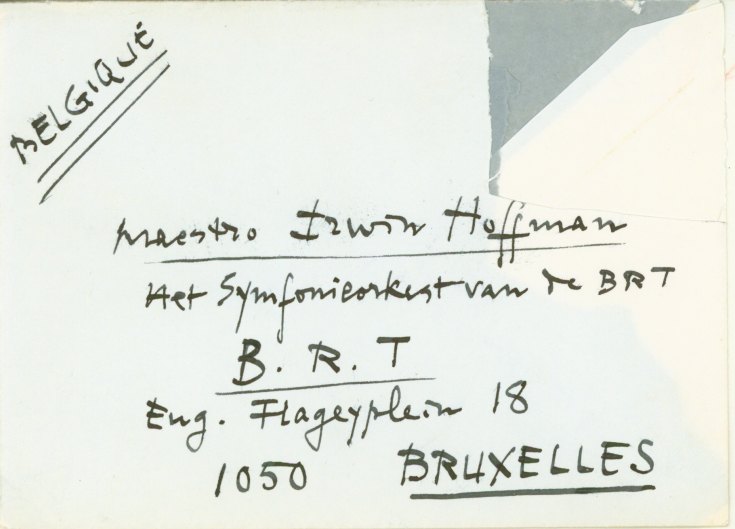 BELGIQUE
Maestro Irwin Hoffman
Het Symfonieorkest van de BRT
B. R. T
Eug. Flageyplein 18
1050 BRUXELLES